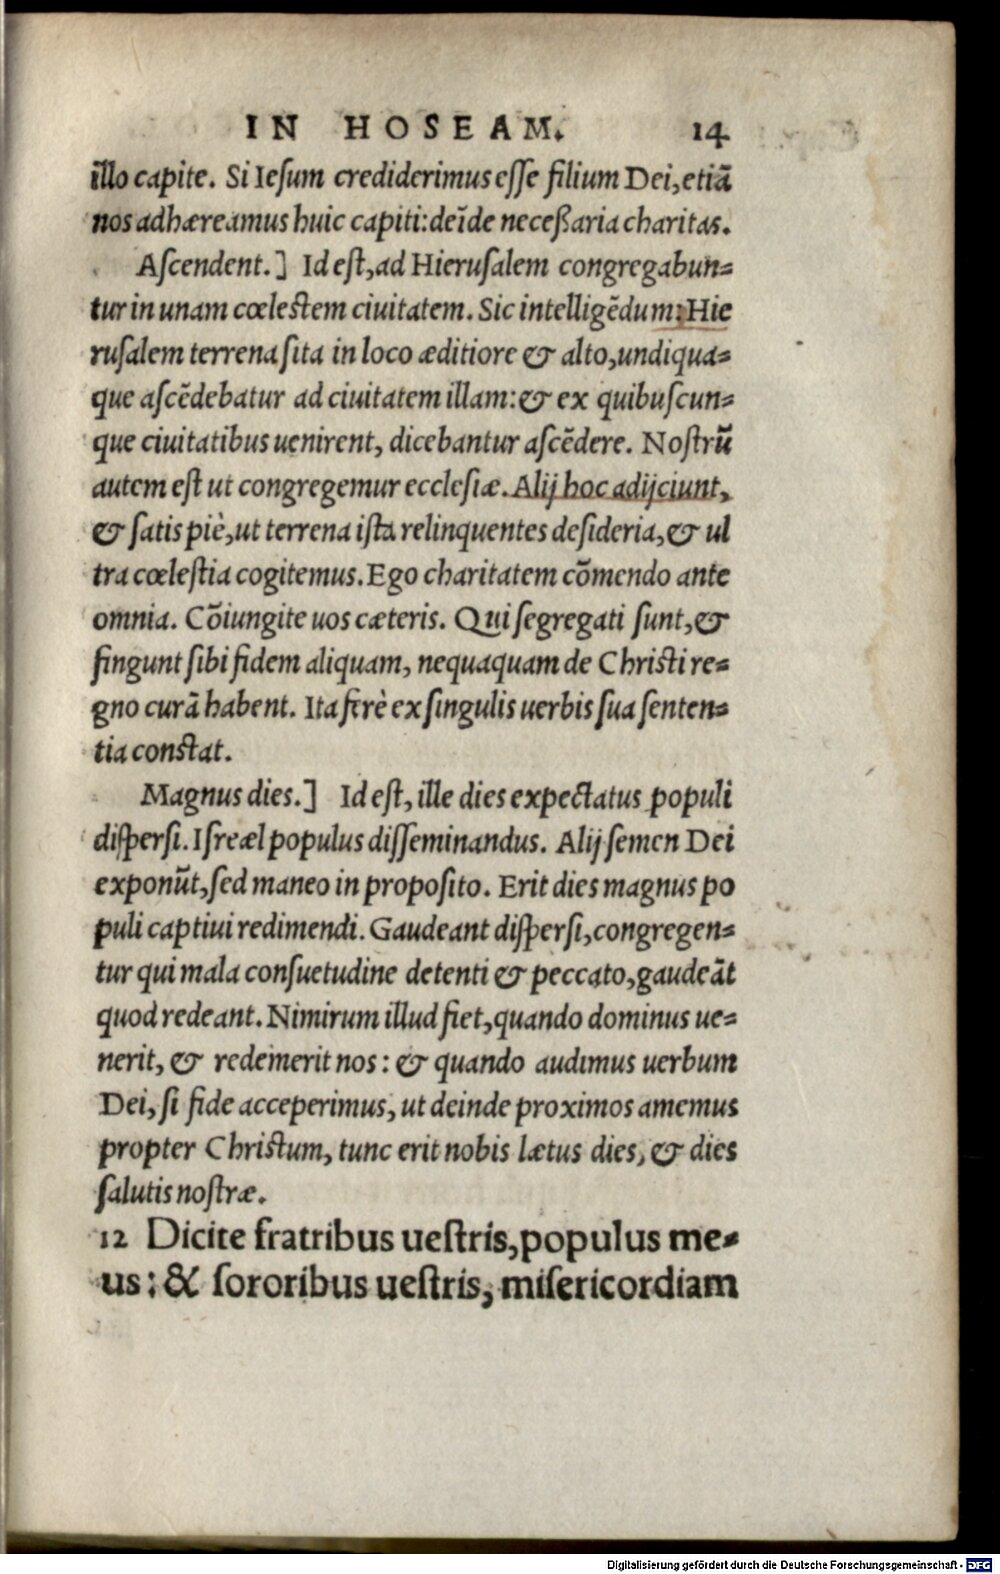 IN HOSEAM. 14
illo capite. Si Iesum crediderimus esse filium Dei, etiā
nos adhæreamus huic capiti: deīde neceßaria charitas.
Ascendent.] Id est, ad Hierusalem congregabun=
tur in unam cœlestem ciuitatem. Sic intelligēdum: Hie
rusalem terrena sita in loco æditiore & alto, undiqua=
que ascēdebatur ad ciuitatem illam: & ex quibuscun=
que ciuitatibus uenirent, dicebantur ascēdere. Nostrū
autem est ut congregemur ecclesiæ. Alij hoc adijciunt,
& satis piè, ut terrena ista relinquentes desideria, & ul
tra cœlestia cogitemus. Ego charitatem cōmendo ante
omnia. Cōiungite uos cæteris. Qui segregati sunt, &
fingunt sibi fidem aliquam, nequaquam de Christi re=
gno curā habent. Ita ferè ex singulis uerbis sua senten=
tia constat.
Magnus dies.] Id est, ille dies expectatus populi
dispersi. Isreæl populus disseminandus. Alij semen Dei
exponūt, sed maneo in proposito. Erit dies magnus po
puli captiui redimendi. Gaudeant dispersi, congregen=
tur qui mala consuetudine detenti & peccato, gaudeāt
quod redeant. Nimirum illud fiet, quando dominus ue=
nerit, & redemerit nos: & quando audimus uerbum
Dei, si fide acceperimus, ut deinde proximos amemus
propter Christum, tunc erit nobis lætus dies, & dies
salutis nostræ.
12 Dicite fratribus uestris, populus me=
us: & sororibus uestris, misericordiam
Digitalisierung gefördert durch die Deutsche Forschungsgemeinschaft - DFG